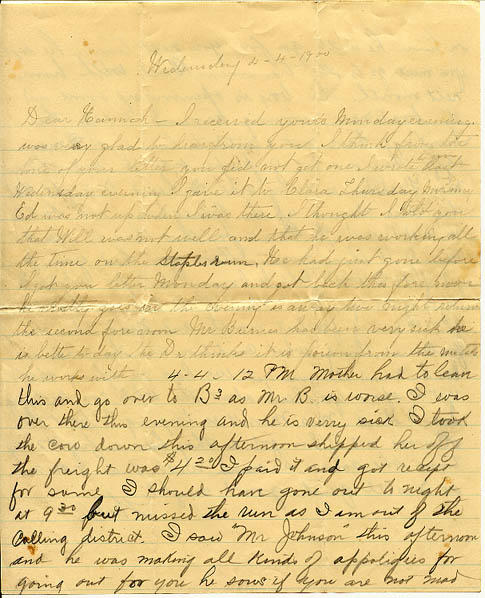 Wednesday 2-4-1900
Dear Hannah - I received yours Monday evening
was very glad to hear from you. I think from the
tone of your letter you did not get one I wrote last
Wednesday evening I gave it to Clara Thursday morning
Ed was not up when I was there. I thought I told you
that Will was not well and that he was working all
the time on the Staples run. He had just gone before
I got your letter Monday and got back this fore noon
he goes in the evening is away two nights returns
the second fore noon Mr has been very sick he
is better to day the Dr thinks it is poison from the
he works with. 4-4- 12 PM Mother had to leave
this and go over to B's as Mr B. is worse. I was
over there this evening and he is verry sick. I took
the cow down this afternoon shipped her off
the freight was $4 I paid it and got recept
for same. I should have gone out to night
at 9 30 but missed the run as I am out of the
calling district. I saw "Mr Johnson" this afternoon
and he was making all kinds of appoligies for
going out for you he sows if you are not mad